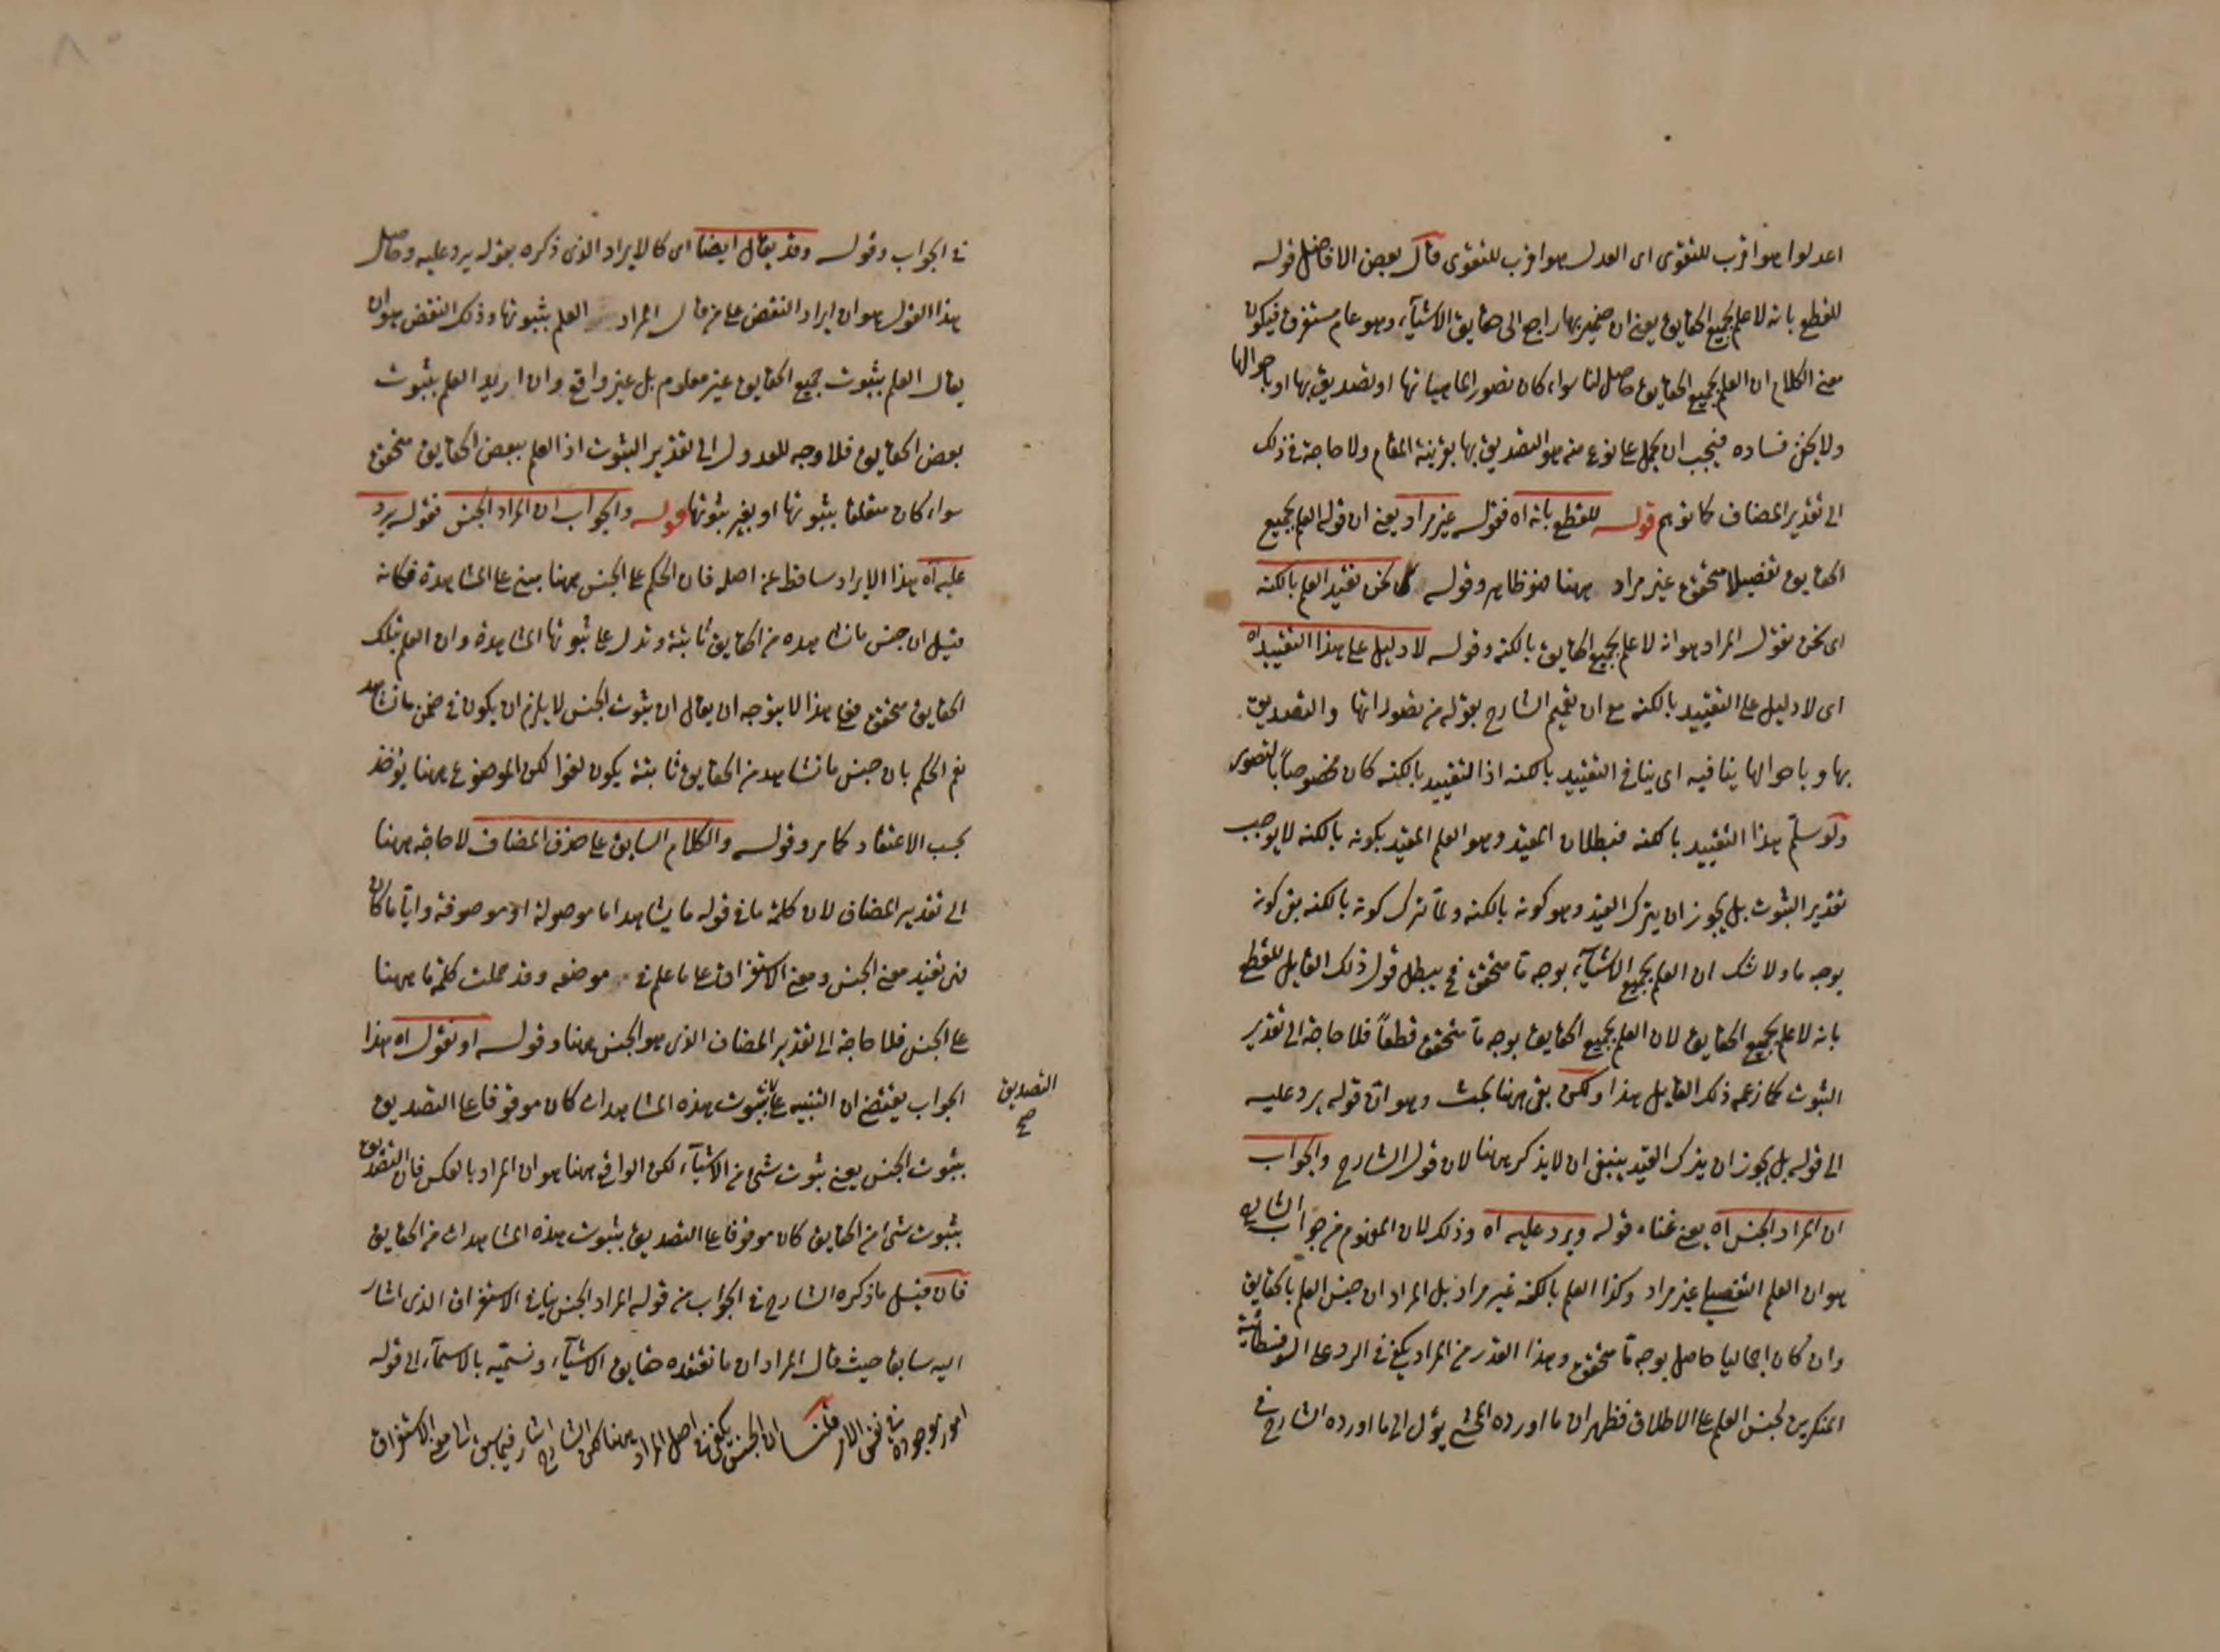 اعدلوا هو اقرب للتقوى اى العدل هو اقرب للتقوى قال بعض الافاضل قوله
للقطع بانه لا علم بجميع الحقايق يعنى ان ضمير بها راجع الى حقايق الاشيآء وهو عام مستغرق فيكون
معنى الكلام ان العلم بجميع الحقايق حاصل لنا سواء كان تصور الماهياتها او تصديق بها او باحوالها
ولا يخفى فساده فيجب ان يحمل على نوع منه هو التصديق بها بقرينة المقام ولا حاجة فى ذلك
الى تقدير المضاف كما توهم قوله للقطع بانه اه فقوله غير مراد يعنى ان قوله العلم بجميع
الحقايق تفصيلا متحقق غير مراد ههنا فهو ظاهر وقوله نحن نقيد العلم بالكنه
اى نحن نقول المراد هو انه لا علم بجميع الحقايق بالكنه وقوله لا دليل على هذا التقييد اه
اى لا دليل على التقييد بالكنه مع ان تعميم الشارح بقوله من تصوراتها والتصديق
بها وباحوالها ينافيه اى ينافى التقييد بالكنه اذ التقييد بالكنه كان مخصوصاً بالتصور
ولو سلم هذا التقييد بالكنه فبطلان المقيد وهو العلم المقيد بكونه بالكنه لا يوجب
تقدير الثبوت بل يجوز ان يترك القيد وهو كونه بالكنه ولما ترك كونه بالكنه بقى كونه
بوجه ما ولا شك ان العلم بجميع الاشيآء بوجه ما متحقق فح يبطل قول ذلك القايل للقطع
بانه لا علم بجميع الحقايق لان العلم بجميع الحقايق بوجه ما متحقق قطعاً فلا حاجة الى تقدير
الثبوت كما زعمه ذلك القايل هذا ولكن بقى ههنا بحث وهو ان قوله يرد عليه
الى قوله بل يجوز ان يترك القيد ينبغى ان لا يذكر ههنا لان قول الشارح والجواب
ان المراد الجنس اه يعنى غناء قوله ويرد عليه اه وذلك لان المفهوم من جواب الشارح
هو ان العلم التفصيلى غير مراد وكذا العلم بالكنه غير مراد بل المراد ان جنس العلم بالحقايق
وان كان اجماليا حاصل بوجه ما متحقق وهذا القدر من المراد يكفى فى الرد على السوفسطائية
المنكرين لجنس العلم على الاطلاق فظهر ان ما اورده المحشى يؤل الى ما اورده الشارح فى
فى الجواب وقوله وقد يقال ايضا اى كالايراد الذى ذكره بقوله يرد عليه وحاصل
هذا القول هو ان ايراد النقض على من قال المراد العلم بثبوتها وذلك النقض هو ان
يقال العلم بثبوت جميع الحقايق غير معلوم بل غير واقع وان اريد العلم بثبوت
بعض الحقايق فلا وجه للعدول الى تقدير الثبوت اذ العلم ببعض الحقايق متحقق
سواء كان متعلقا بثبوتها او بغير ثبوتها قوله والجواب ان المراد الجنس فقوله يرد
عليه اه هذا الايراد ساقط عن اصله فان الحكم على الجنس ههنا مبنى على المشاهدة فكانه
قيل ان جنس ما نشاهده من الحقايق ثابتة وتدل على ثبوتها المشاهدة وان العلم بتلك
الحقايق متحقق فعلى هذا لا يتوجه ان يقال ان ثبوت الجنس لا يلزم ان يكون فى ضمن ما نشاهد
نعم الحكم بان جنس ما نشاهد من الحقايق ثابتة يكون لغوا لكن الموضوع ههنا يؤخذ
بحسب الاعتقاد كما مر وقوله والكلام السابق على حذف المضاف لا حاجة ههنا
الى تقدير المضاف لان كلمة ما فى قوله ما يشاهد اما موصولة او موصوفة وايا ما كان
فهى تفيد معنى الجنس ومعنى الاستغراق على ما علم فى موضعه وقد حملت كلمة ما ههنا
على الجنس فلا حاجة الى تقدير المضاف الذى هو الجنس ههنا وقوله او نقول اه هذا
الجواب يقتضى ان التنبيه على ثبوت هذه المشاهدات كان موقوفا على التصديق
التصديق
صح
بثبوت الجنس يعنى ثبوت شئ من الاشيآء لكن الواقع ههنا هو ان المراد بالعكس فان التصديق
بثبوت شئ من الحقايق كان موقوفا على التصديق بثبوت هذه المشاهدات من الحقايق
فان قيل ما ذكره الشارح فى الجواب من قوله المراد الجنس ينافى الاستغراق الذى اشار
اليه سابقا حيث قال المراد ان ما نعتقده حقايق الاشيآء ونسميه بالاسمآء الى قوله
امور موجودة فى نفس الامر قلنا ان الجنس يكفى فى اصل المراد ههنا لكن الشارح اشار فيما سبق الى معنى الاستغراق